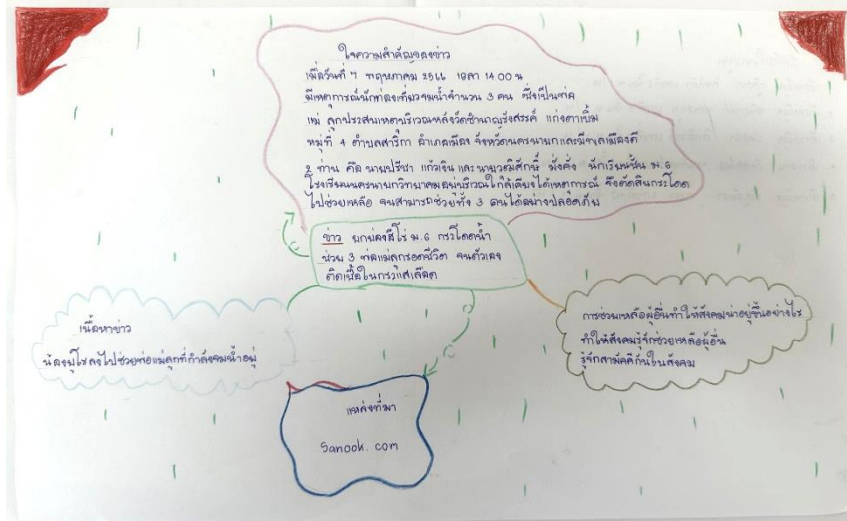 ใจความสำคัญของข่าว
เมื่อวันที่ 7 พฤษภาคม 2566 เวลา 14.00 น
มีเหตุการณ์นักท่องเที่ยวจมน้ำจำนวน 3 คน ซึ่งเป็นพ่อ
แม่ ลูกประสบเหตุบริเวณหลังวัดชำนาญรังสรรค์ แก่งตาเบิ้ม
หมู่ที่ 4 ตำบลสาริกา อำเภอเมือง จังหวัดนครนายกและมีพลเมืองดี
2 ท่าน คือ นายปรีชา แก้วเงิน และ นายวุฒิศักดิ์ มั่งคั่ง นักเรียนชั้น ม.6
โรงเรียนนครนายกวิทยาคมอยู่บริเวณใกล้เคียงได้เหตุการณ์ จึงตัดสินกระโดด
ไปช่วยเหลือ จนสามารถช่วยทั้ง 3 คนได้อย่างปลอดภัย
ข่าว ยกย่องฮีโร่ ม.6 กระโดดน้ำ
ช่วย 3 พ่อแม่ลูกรอดชีวิต จนตัวเอง
ติดเชื้อในกระแสเลือด
เนื้อหาข่าว
น้องฮีโร่ลงไปช่วยพ่อแม่ลูกที่กำลังจมน้ำอยู่
การช่วยเหลือผู้อื่นทำให้สังคมน่าอยู่ขึ้นอย่างไร
ทำให้สังคมรู้จักช่วยเหลือผู้อื่น
รู้จักสามัคคีกันในสังคม
แหล่งที่มา
Sanook. com